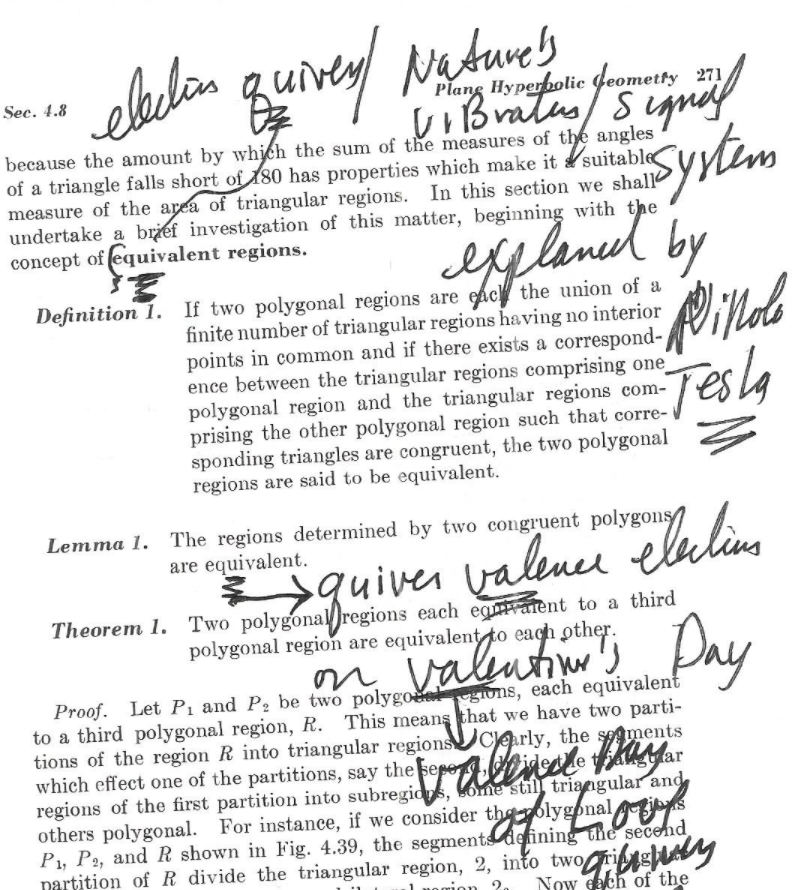 electins quivers/ Nature's
Sec. 4.8 Plane Hyperbolic Geometry 271
ViBrates/ Signal
System
because the amount by which the sum of the measures of the angles
of a triangle falls short of 180 has properties which make it a suitable
measure of the area of triangular regions. In this section we shall
undertake a brief investigation of this matter, beginning with the
concept of equivalent regions.
explaned by
Nikola
Tesla
Definition 1. If two polygonal regions are each the union of a
finite number of triangular regions having no interior
points in common and if there exists a correspond-
ence between the triangular regions comprising one
polygonal region and the triangular regions com-
prising the other polygonal region such that corre-
sponding triangles are congruent, the two polygonal
regions are said to be equivalent.
Lemma 1. The regions determined by two congruent polygons
are equivalent.
quiver valence electins
Theorem 1. Two polygonal regions each equivalent to a third
polygonal region are equivalent to each other.
on valentine's Day
Proof. Let P₁ and P₂ be two polygonal regions, each equivalent
to a third polygonal region, R. This means that we have two parti-
tions of the region R into triangular regions. Clearly, the segments
which effect one of the partitions, say the second, divide the triangular
regions of the first partition into subregions, some still triangular and
others polygonal. For instance, if we consider the polygonal regions
P₁, P₂, and R shown in Fig. 4.39, the segments defining the second
partition of R divide the triangular region, 2, into two triangular
Valence Day
of Love
region, 2₂. Now each of the